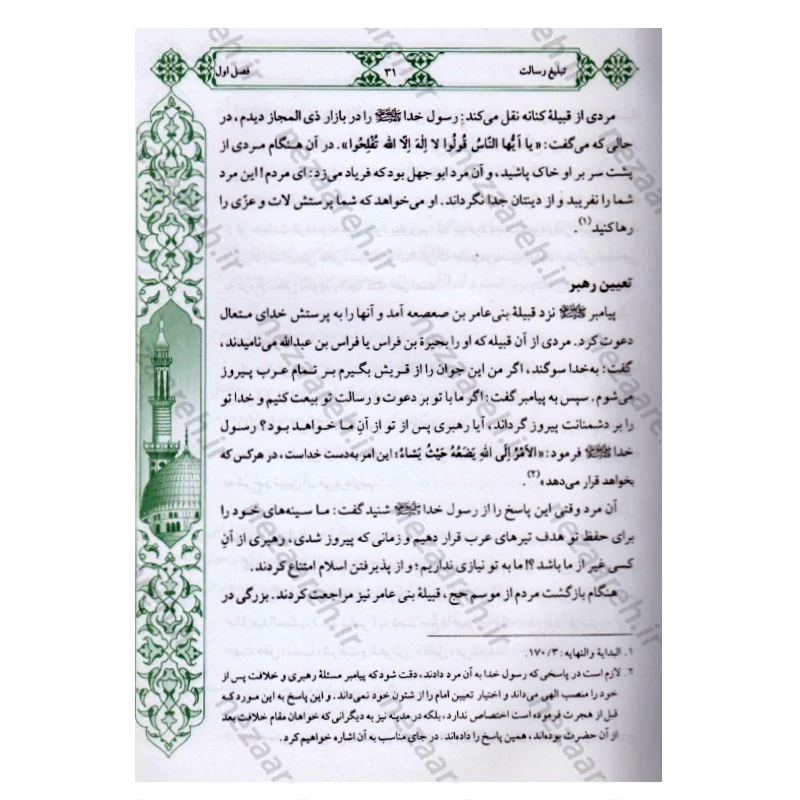 تبلیغ رسالت ۳۱ فصل اول
مردی از قبیلهٔ کنانه نقل می‌کند: رسول خدا ﷺ را در بازار ذی المجاز دیدم، در
حالی که می‌گفت: «یا اَیُّها النّاسُ قُولُوا لا اِلٰهَ اِلّا الله تُفْلِحُوا». در آن هنگام مردی از
پشت سر بر او خاک پاشید، و آن مرد ابو جهل بود که فریاد می‌زد: ای مردم! این مرد
شما را نفریبد و از دینتان جدا نگرداند. او می‌خواهد که شما پرستش لات و عزّی را
رها کنید(۱).
تعیین رهبر
پیامبر ﷺ نزد قبیلهٔ بنی عامر بن صعصعه آمد و آنها را به پرستش خدای متعال
دعوت کرد. مردی از آن قبیله که او را بحیرة بن فراس یا فراس بن عبدالله می‌نامیدند،
گفت: به‌خدا سوگند، اگر من این جوان را از قریش بگیرم بر تمام عرب پیروز
می‌شوم. سپس به پیامبر گفت: اگر ما با تو بر دعوت و رسالت تو بیعت کنیم و خدا تو
را بر دشمنانت پیروز گرداند، آیا رهبری پس از تو از آنِ ما خواهد بود؟ رسول
خدا ﷺ فرمود: «الأمْرُ اِلَی اللهِ یَضَعُهُ حَیْثُ یَشاءُ؛ این امر به‌دست خداست، در هرکس که
بخواهد قرار می‌دهد»(۲).
آن مرد وقتی این پاسخ را از رسول خدا ﷺ شنید گفت: ما سینه‌های خود را
برای حفظ تو هدف تیرهای عرب قرار دهیم و زمانی که پیروز شدی، رهبری از آنِ
کسی غیر از ما باشد؟! ما به تو نیازی نداریم؛ و از پذیرفتن اسلام امتناع کردند.
هنگام بازگشت مردم از موسم حج، قبیلهٔ بنی عامر نیز مراجعت کردند. بزرگی در
۱. البدایة والنهایه: ۱۷۰/۳.
۲. لازم است در پاسخی که رسول خدا به آن مرد دادند، دقت شود که پیامبر مسئلهٔ رهبری و خلافت پس از
خود را منصب الهی می‌داند و اختیار تعیین امام را از شئون خود نمی‌داند. و این پاسخ به این مورد که
قبل از هجرت فرموده است اختصاص ندارد، بلکه در مدینه نیز به دیگرانی که خواهان مقام خلافت بعد
از آن حضرت بوده‌اند، همین پاسخ را داده‌اند. در جای مناسب به آن اشاره خواهیم کرد.
nezaareh.ir